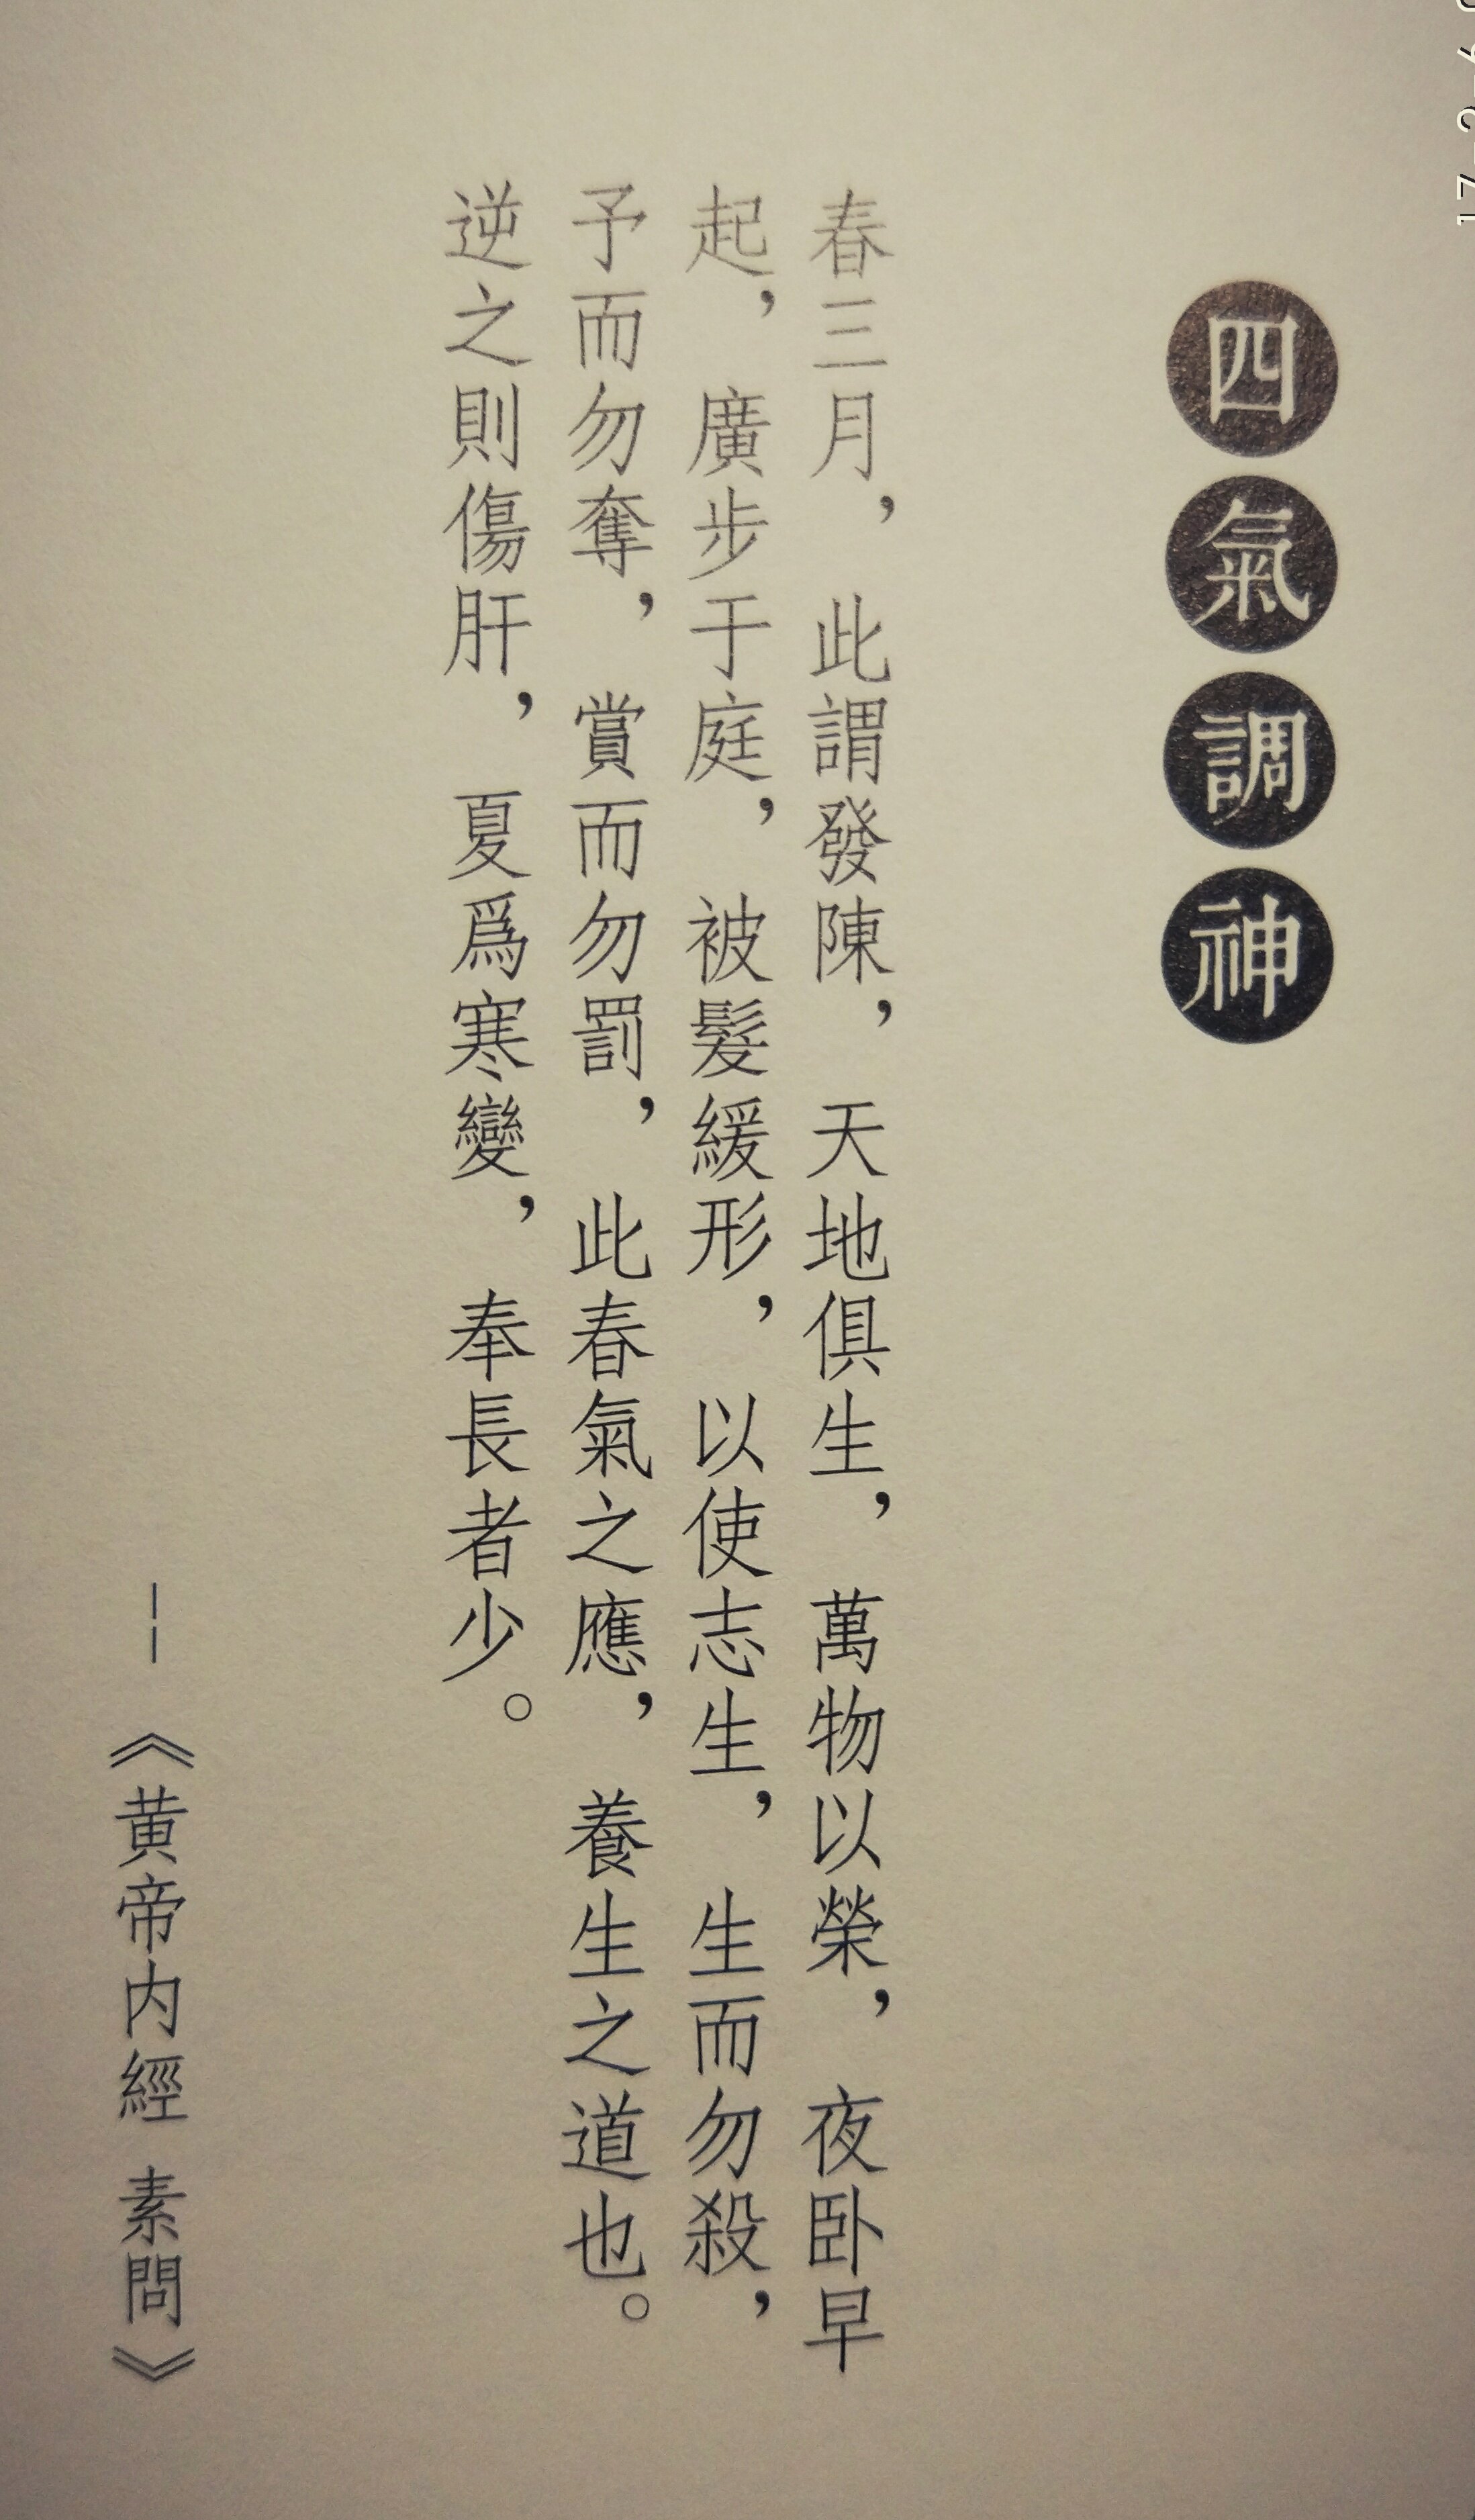 四氣調神
春三月，此謂發陳，天地俱生，萬物以榮，夜卧早
起，廣步于庭，被髮緩形，以使志生，生而勿殺，
予而勿奪，賞而勿罰，此春氣之應，養生之道也。
逆之則傷肝，夏爲寒變，奉長者少。
——《黄帝内經 素問》